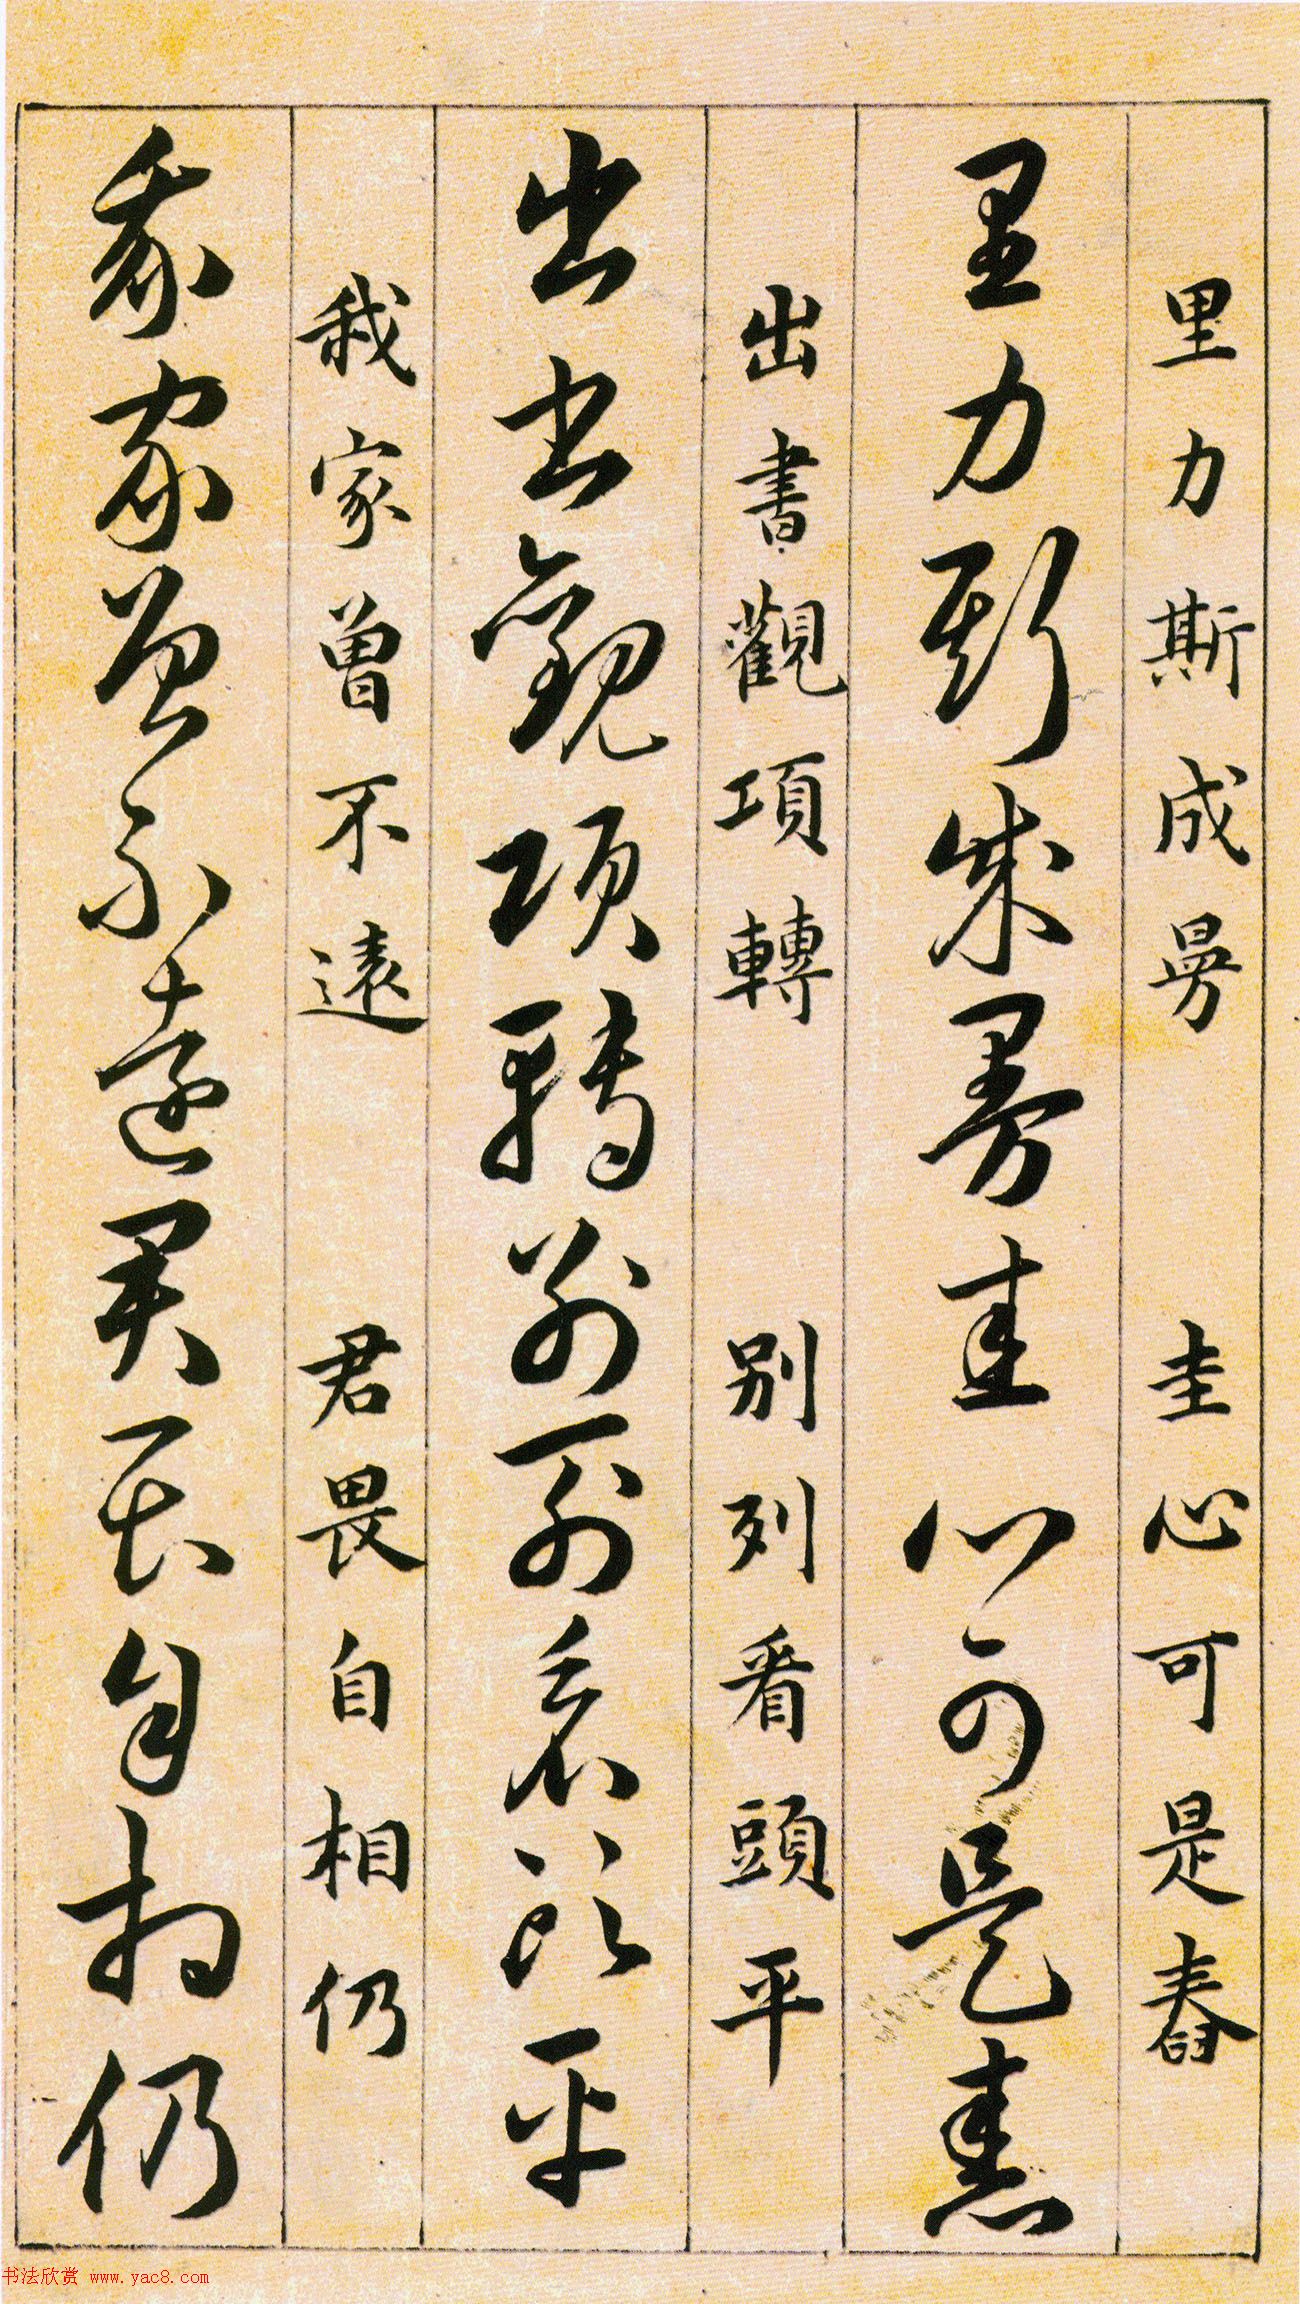 里力斯成曼 圭心可是舂
里力斯成曼圭心可是舂
出書觀項轉 别列看頭平
出書觀項轉别列看頭平
我家曾不遠 君畏自相仍
我家曾不遠君畏自相仍
书法欣赏 www.yac8.com